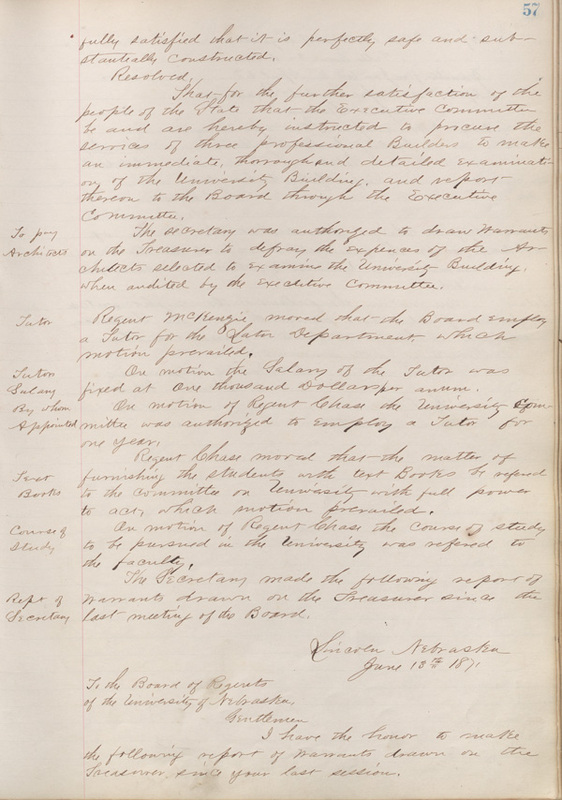 57
fully satisfied that it is perfectly safe and sub-
stantially constructed.
Resolved,
That for the further satisfaction of the
people of the State that the Executive Committee
be and are hereby instructed to procure the
services of three professional Builders to make
an immediate, thorough and detailed examinati-
on of the University Building, and report
thereon to the Board through the Executive
Committee.
To pay
Architects
The secretary was authorized to draw Warrants
on the Treasurer to defray the expences of the Ar-
chitects selected to examine the University Building,
when audited by the Executive Committee.
Tutor
Regent McKenzie moved that the Board Employ
a Tutor for the Latin Department, which
motion prevailed.
Tutors
Salary
On motion the Salary of the Tutor was
fixed at One thousand Dollars per anum.
By whom
Appointed
On motion of Regent Chase the University Com-
mittee was authorized to Employ a Tutor for
one year.
Text
Books
Regent Chase moved that the matter of
furnishing the students with text Books be refered
to the committee on University with full power
to act, which motion prevailed.
Course of
Study
On motion of Regent Chase the course of study
to be pursued in the University was refered to
the faculty.
Rept of
Secretary
The Secretary made the following report of
warrants drawn on the Treasurer since the
last meeting of the Board.
Lincoln Nebraska
June 13th 1871
To the Board of Regents
of the University of Nebraska,
Gentlemen
I have the honor to make
the following report of warrants drawn on the
Treasurer, since your last session.